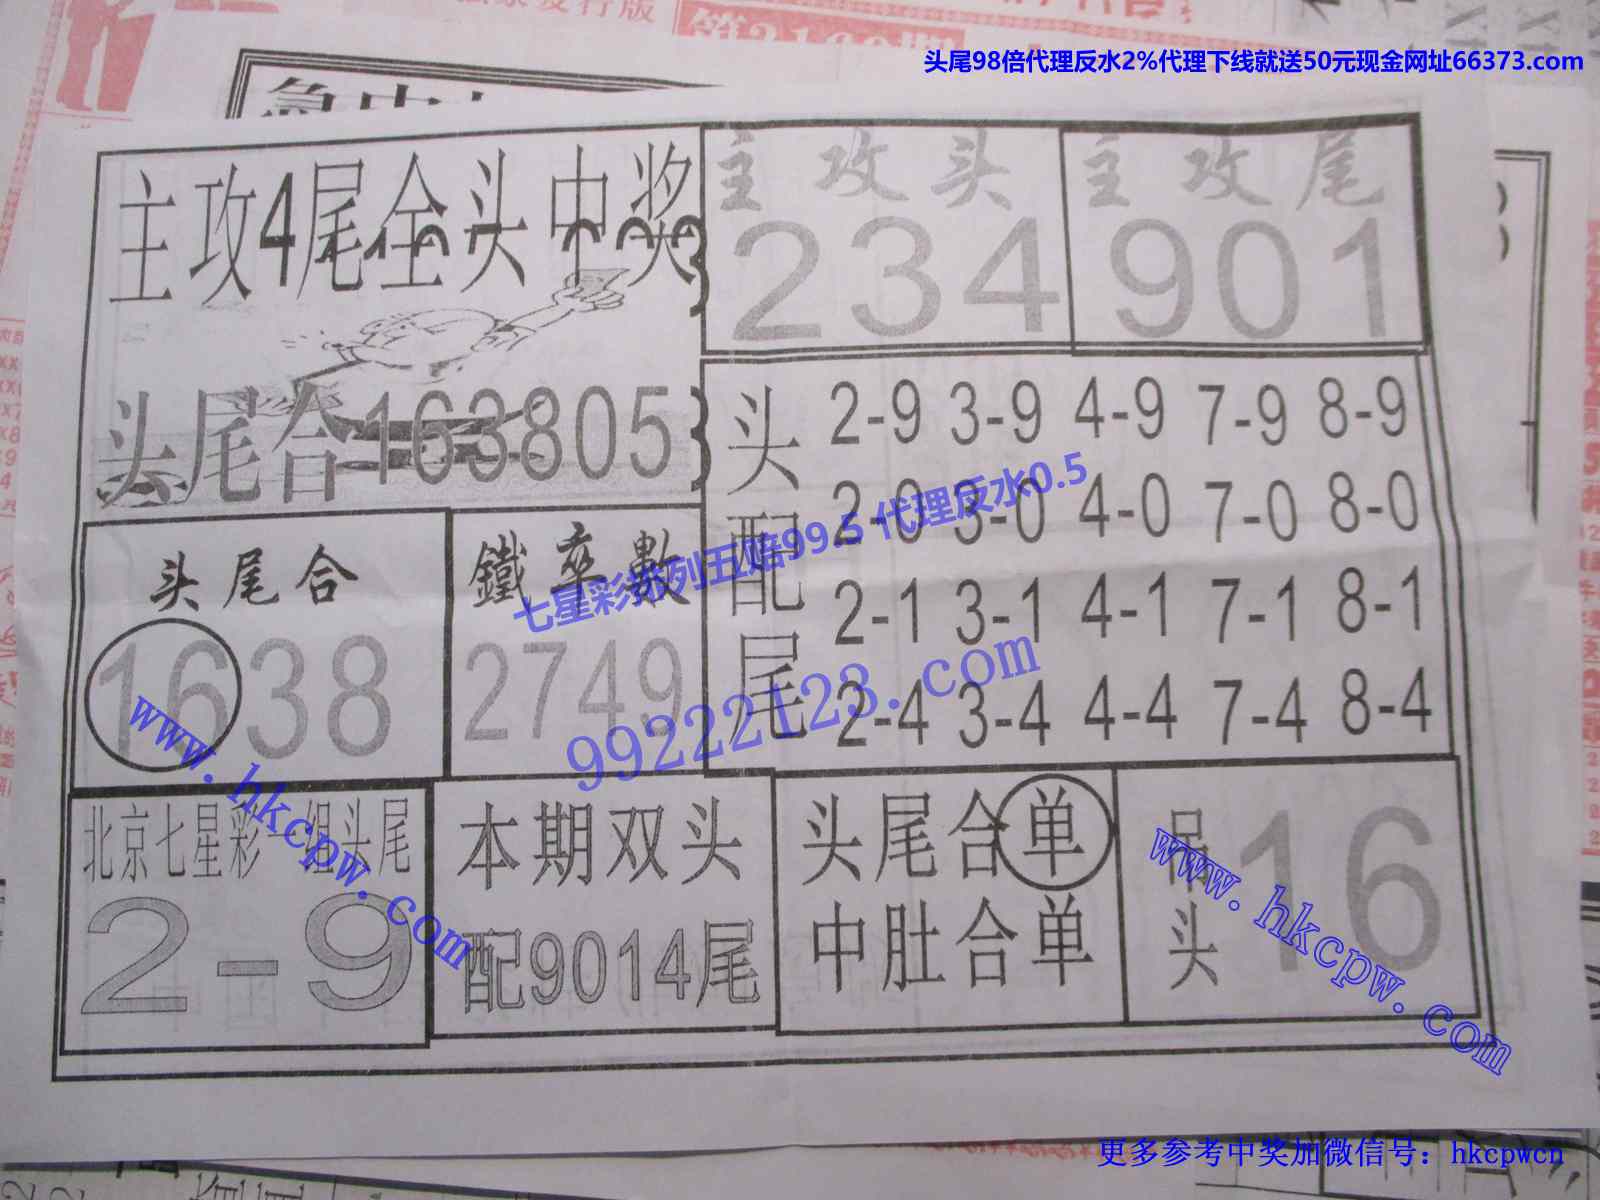 头尾98倍代理反水2%代理下线就送50元现金网址66373.com
主攻4尾全头中奖
主攻头
234
主攻尾
901
头尾合163805
头配尾
2-9 3-9 4-9 7-9 8-9
2-0 3-0 4-0 7-0 8-0
2-1 3-1 4-1 7-1 8-1
2-4 3-4 4-4 7-4 8-4
头尾合
1638
鐵率數
2749
七星彩排列五赔99.5 代理反水0.5
99222123.com
www.hkcpw.com
北京七星彩一组头尾
2-9
本期双头
配9014尾
头尾合单
中肚合单
吊头
16
www.hkcpw.com
更多参考中奖加微信号：hkcpwcn